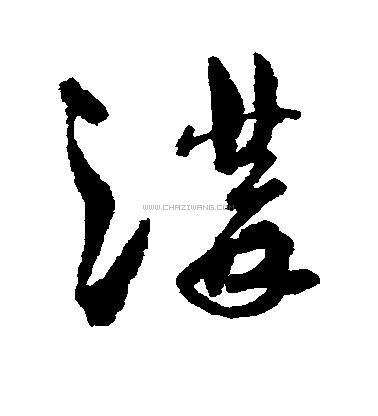 溝
WWW.CHAZIWANG.COM